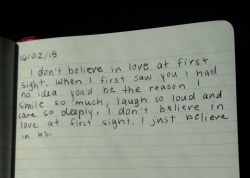 16/02/15
I don't believe in love at first
sight. When I first saw you I had
no idea you'd be the reason I
smile so much, laugh so loud and
care so deeply. I don't believe in
love at first sight. I just believe
in us.